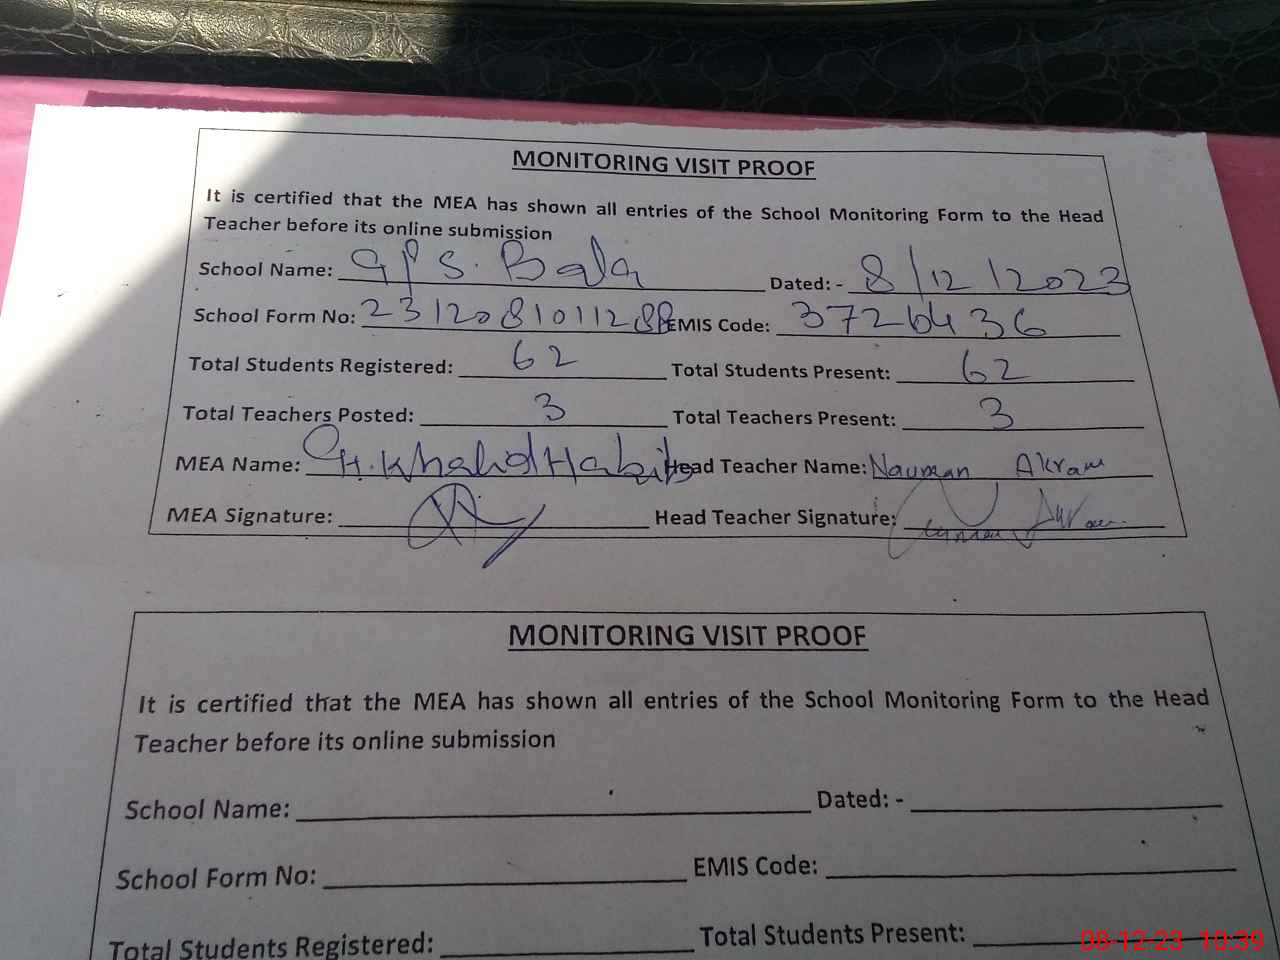 MONITORING VISIT PROOF
It is certified that the MEA has shown all entries of the School Monitoring Form to the Head
Teacher before its online submission
School Name: GPS. Bala Dated: - 8/12/2023
School Form No: EMIS Code: 37264436
Total Students Registered: 62 Total Students Present: 62
Total Teachers Posted: 3 Total Teachers Present: 3
MEA Name: Ch. Khalid Habib Head Teacher Name: Nauman Akram
MEA Signature: Head Teacher Signature: Akram
MONITORING VISIT PROOF
It is certified that the MEA has shown all entries of the School Monitoring Form to the Head
Teacher before its online submission
School Name: Dated: -
School Form No: EMIS Code:
Total Students Registered: Total Students Present:
08-12-23 10:39